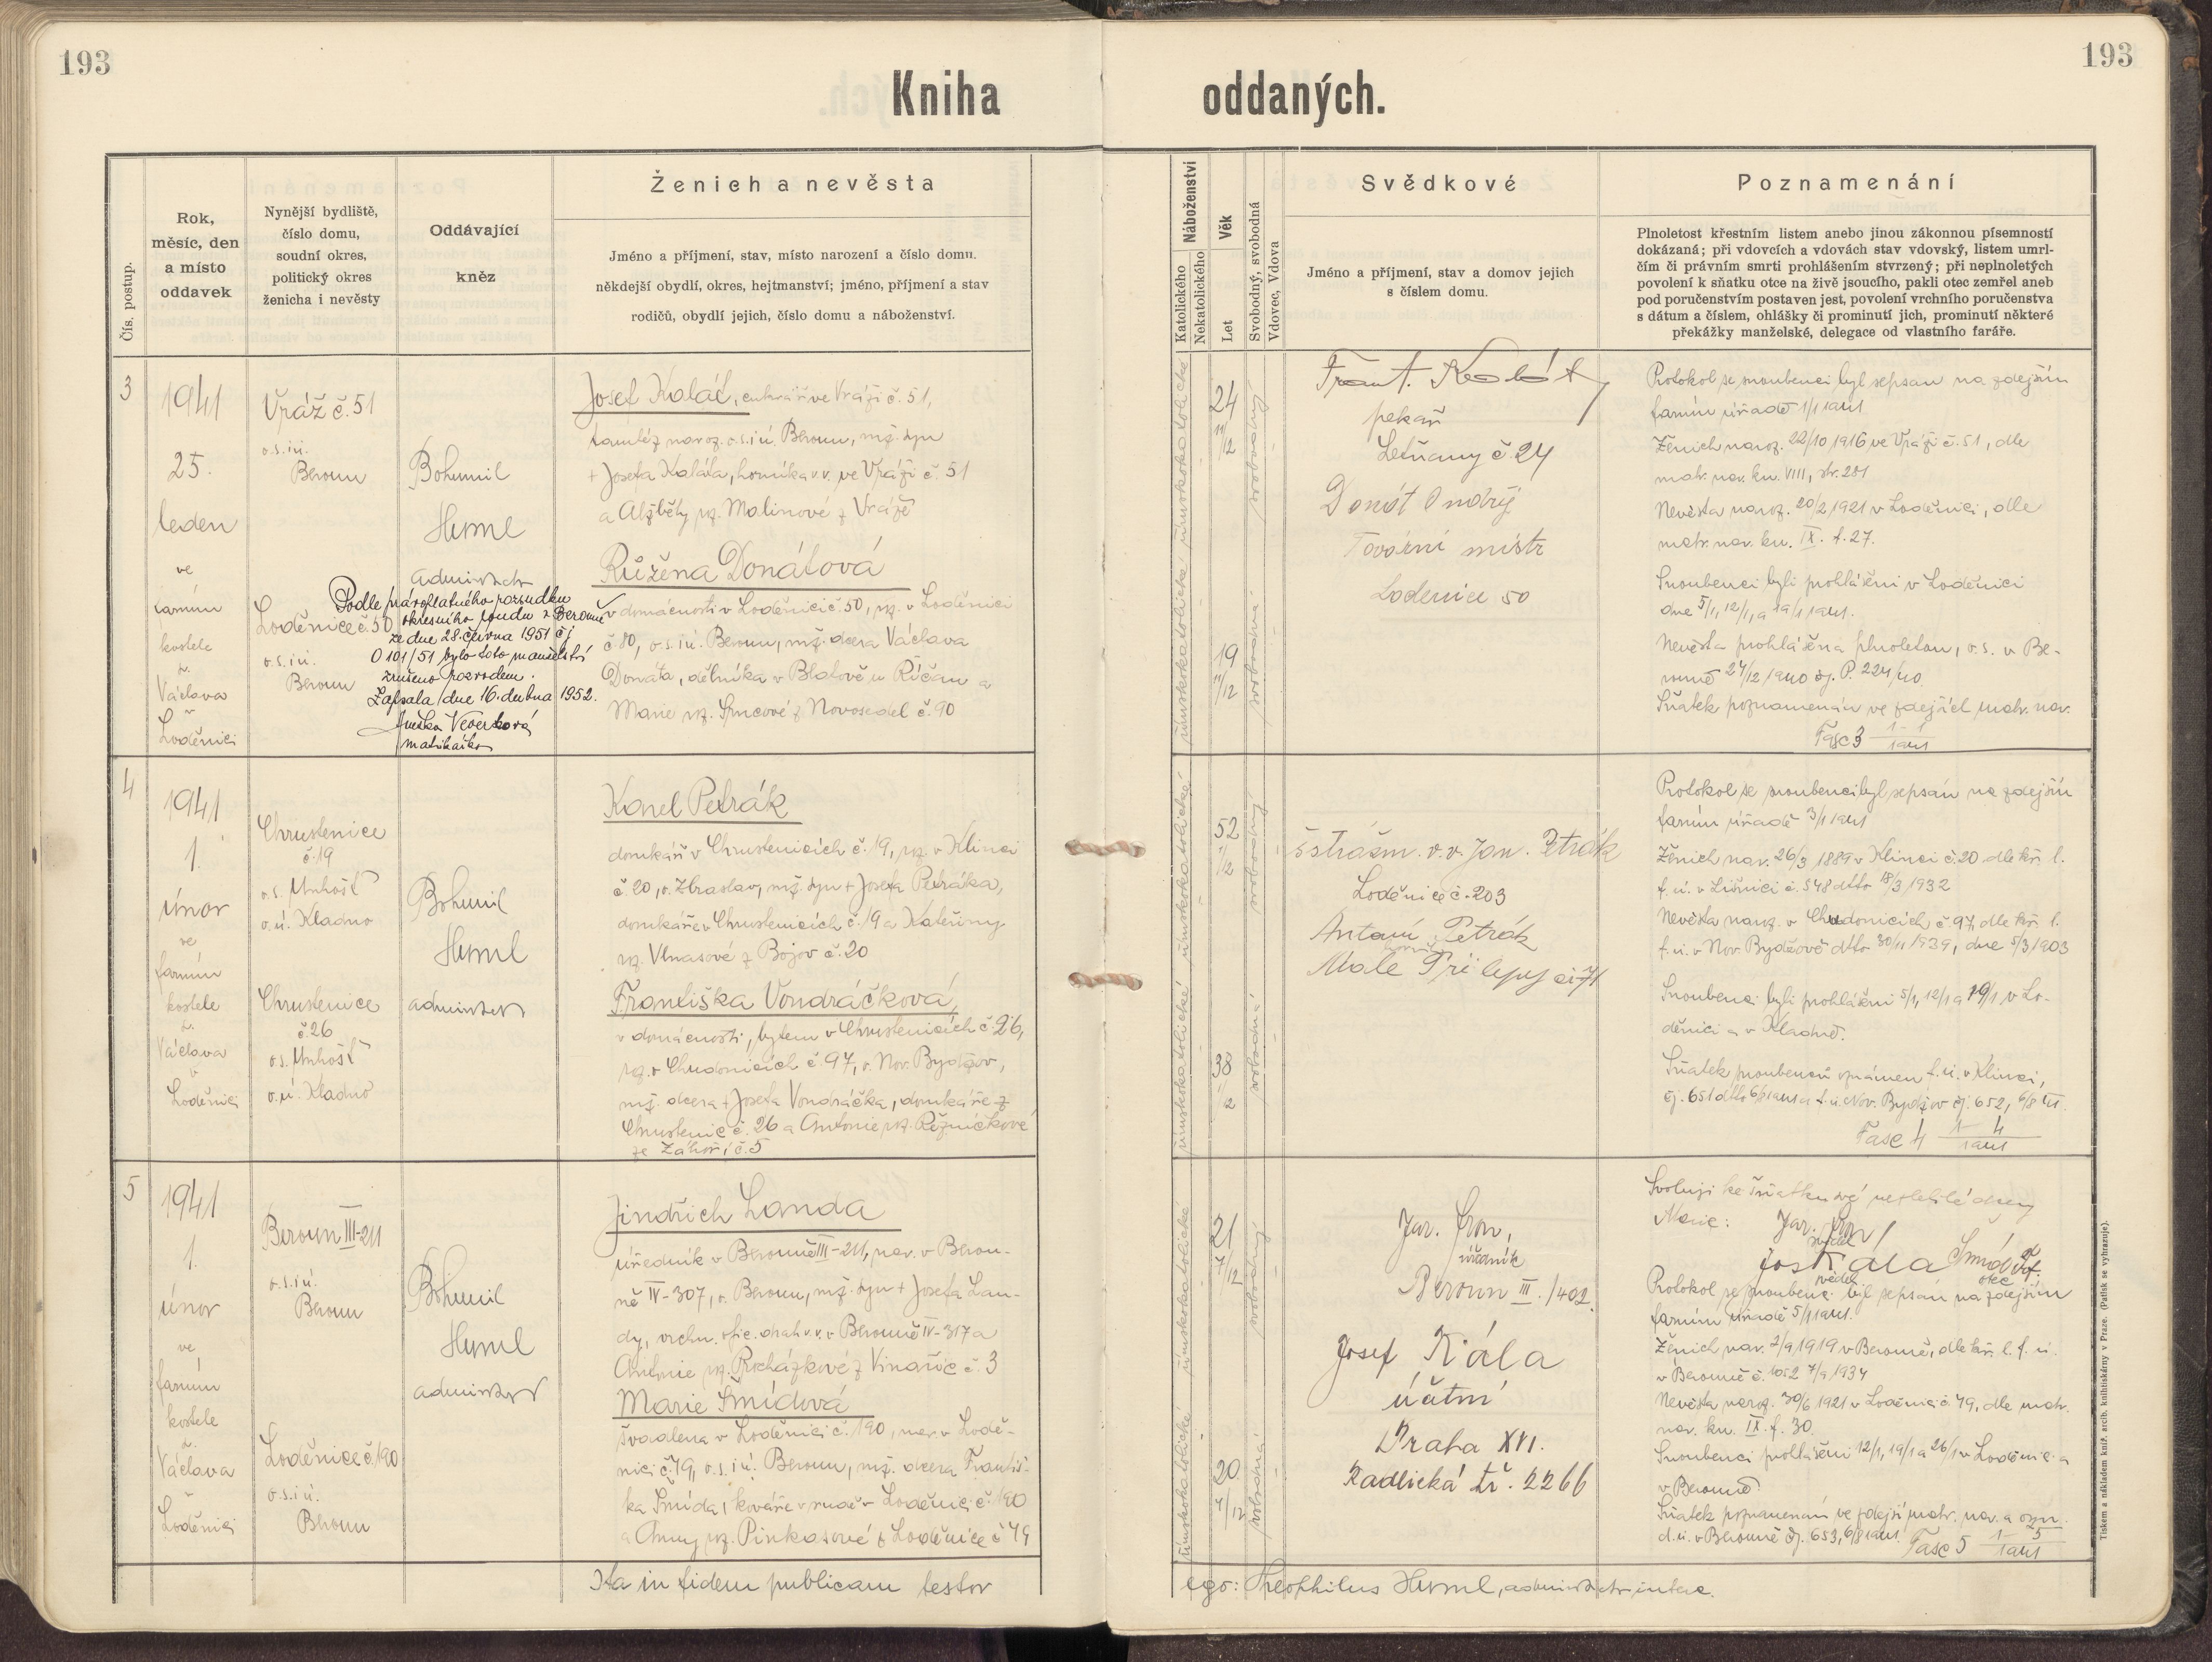 193
193
Kniha oddaných.
Čís. postup.
Rok,
měsíc, den
a místo
oddavek
Nynější bydliště,
číslo domu,
soudní okres,
politický okres
ženicha i nevěsty
Oddávající
kněz
Ženich a nevěsta
Jméno a příjmení, stav, místo narození a číslo domu.
někdejší obydlí, okres, hejtmanství; jméno, příjmení a stav
rodičů, obydlí jejich, číslo domu a náboženství.
Náboženství
Katolického
Nekatolického
Věk
Let
Svobodný, svobodná
Vdovec, Vdova
Svědkové
Jméno a příjmení, stav a domov jejich
s číslem domu.
Poznamenání
Plnoletost křestním listem anebo jinou zákonnou písemností
dokázaná; při vdovcích a vdovách stav vdovský, listem umrl-
čím či právním smrti prohlášením stvrzený; při neplnoletých
povolení k sňatku otce na živě jsoucího, pakli otec zemřel aneb
pod poručenstvím postaven jest, povolení vrchního poručenstva
s dátum a číslem, ohlášky či prominutí jich, prominutí některé
překážky manželské, delegace od vlastního faráře.
3
1941
25.
leden
ve
farním
kostele
sv.
Václava
v
Loděnici
Vráž č. 51
o.s. i ú.
Beroun
Loděnice č. 50
o.s. i ú.
Beroun
Bohumil
Huml
administr
Podle pravoplatného rozsudku
okresního soudu v Berouně
ze dne 28. června 1951 čj
O 101/51 bylo toto manželství
zrušeno rozvodem.
Zapsala dne 16. dubna 1952.
Anežka Veverková
matrikářka
Josef Kalát, cukrář ve Vráži č. 51,
tamtéž naroz. o.s. i ú. Beroun, mž. syn
+ Josefa Kaláta, horníka v.v. ve Vráži č. 51
a Alžběty roz. Malinové z Vráže
Růžena Donátová
v domácnosti v Loděnici č. 50, roz. v Loděnici
č. 80, o.s. i ú. Beroun, mž. dcera Václava
Donáta, dělníka v Blatově u Říčan a
Marie roz. Srncové z Novosedel č. 90
římskokatolické
římskokatolické
24
11/12
19
11/12
svobodný
svobodná
Frant. Kalát
pekař
Letňany č. 24
Donát Ondřej
Tovární mistr
Lodenice 50
Protokol se snoubenci byl sepsán na zdejším
farním úřadě 1/1 1941
Ženich naroz. 22/10 1916 ve Vráži č. 51, dle
matr. nar. kn. VIII, str. 281
Nevěsta naroz. 20/2 1921 v Loděnici, dle
matr. nar. kn. IX. f. 27.
Snoubenci byli prohlášeni v Loděnici
dne 5/1, 12/1, a 19/1 1941.
Nevěsta prohlášena plnoletou, o.s. v Be-
rouně 27/12 1940 čj. P. 224/40.
Sňatek poznamenán ve zdejších matr. nar.
Fasc 3
4
1941
1.
únor
ve
farním
kostele
sv.
Václava
v
Loděnici
Chrustenice
č. 19
o.s. Unhošť
o.ú. Kladno
Chrustenice
č. 26
o.s. Unhošť
o.ú. Kladno
Bohumil
Huml
administr
Karel Petrák
domkář v Chrustenicích č. 19, roz. v Klínci
č. 20, o. Zbraslav, mž. syn + Josefa Petráka,
domkáře v Chrustenicích č. 19 a Kateřiny
roz. Vlnasové z Bojov č. 20
Františka Vondráčková,
v domácnosti, bytem v Chrustenicích č. 26,
roz. v Chudonicích č. 97, o. Nov. Bydžov,
mž. dcera + Josefa Vondráčka, domkáře z
Chrustenic č. 26 a Antonie roz. Řezníčkové
ze Záhoří č. 5
římskokatolické
římskokatolické
52
38
svobodný
svobodná
šstrážm. v.v. Jan. Petrák
Loděnice č. 203
Antonín Petrák
Malé Přílepy
Protokol se snoubenci byl sepsán na zdejším
farním úřadě 3/1 1941
Ženich nar. 26/3 1889 v Klínci č. 20 dle kř. l.
f. ú. v Líšnici č. 548 dtto 18/3 1932
Nevěsta naroz. v Chudonicích č. 97, dle kř. l.
f. ú. v Nov. Bydžově dtto 30/11 1939, dne 5/3 1903
Snoubenci byli prohlášeni 5/1, 12/1 a 19/1 v Lo-
děnici a v Kladně.
Sňatek snoubenců oznámen f. ú. v Klínci,
čj. 651 dtto 6/8 1941 a f. ú. Nov. Bydžov čj. 652, 6/8 41.
Fasc 4
5
1941
1.
únor
ve
farním
kostele
sv.
Václava
v
Loděnici
Beroun III-211
o.s. i ú.
Beroun
Loděnice č. 190
o.s. i ú.
Beroun
Bohumil
Huml
administr
Jindřich Landa
úředník v Berouně III-211, nar. v Berou-
ně IV-307, o. Beroun, mž. syn + Josefa Lan-
dy, vrchn. ofic. drah v.v. v Berouně IV-317 a
Antonie roz. Procházkové z Vinařic č. 3
Marie Šmídová
švadlena v Loděnici č. 190, nar. v Lodě-
nici č. 79, o.s. i ú. Beroun, mž. dcera Františ-
ka Šmída, kováře v rudě v Loděnici č. 190
a Anny roz. Pinkasové z Loděnice č. 79
římskokatolické
římskokatolické
21
20
7/12
svobodný
svobodná
Jar. Šron,
úředník
Beroun III./402.
Josef Kála
účetní
Praha XVI.
Radlická tř. 2266
Svoluji ke sňatku své nezletilé dcery
Marie:
Jar. Šron
svědek
Jos Kála
svědek
otec
Protokol se snoubenci byl sepsán na zdejším
farním úřadě 5/1 1941.
Ženich nar. 7/9 1919 v Berouně, dle kř. l. f. ú.
v Berouně č. 1052 7/9 1934
Nevěsta naroz. 30/6 1921 v Loděnici č. 79, dle matr.
nar. kn. IX. f. 30.
Snoubenci prohlášeni 12/1, 19/1 a 26/1 v Loděnici a
v Berouně.
Sňatek poznamenán ve zdejší matr. nar. a ozn.
d. ú. v Berouně čj. 653, 6/8 1941.
Fasc 5
Ita in fidem publicam testor
ego: Theophilus Huml, administr interc.
Tiskem a nákladem kníž. arcib. knihtiskárny v Praze. (Patisk se vyhrazuje).